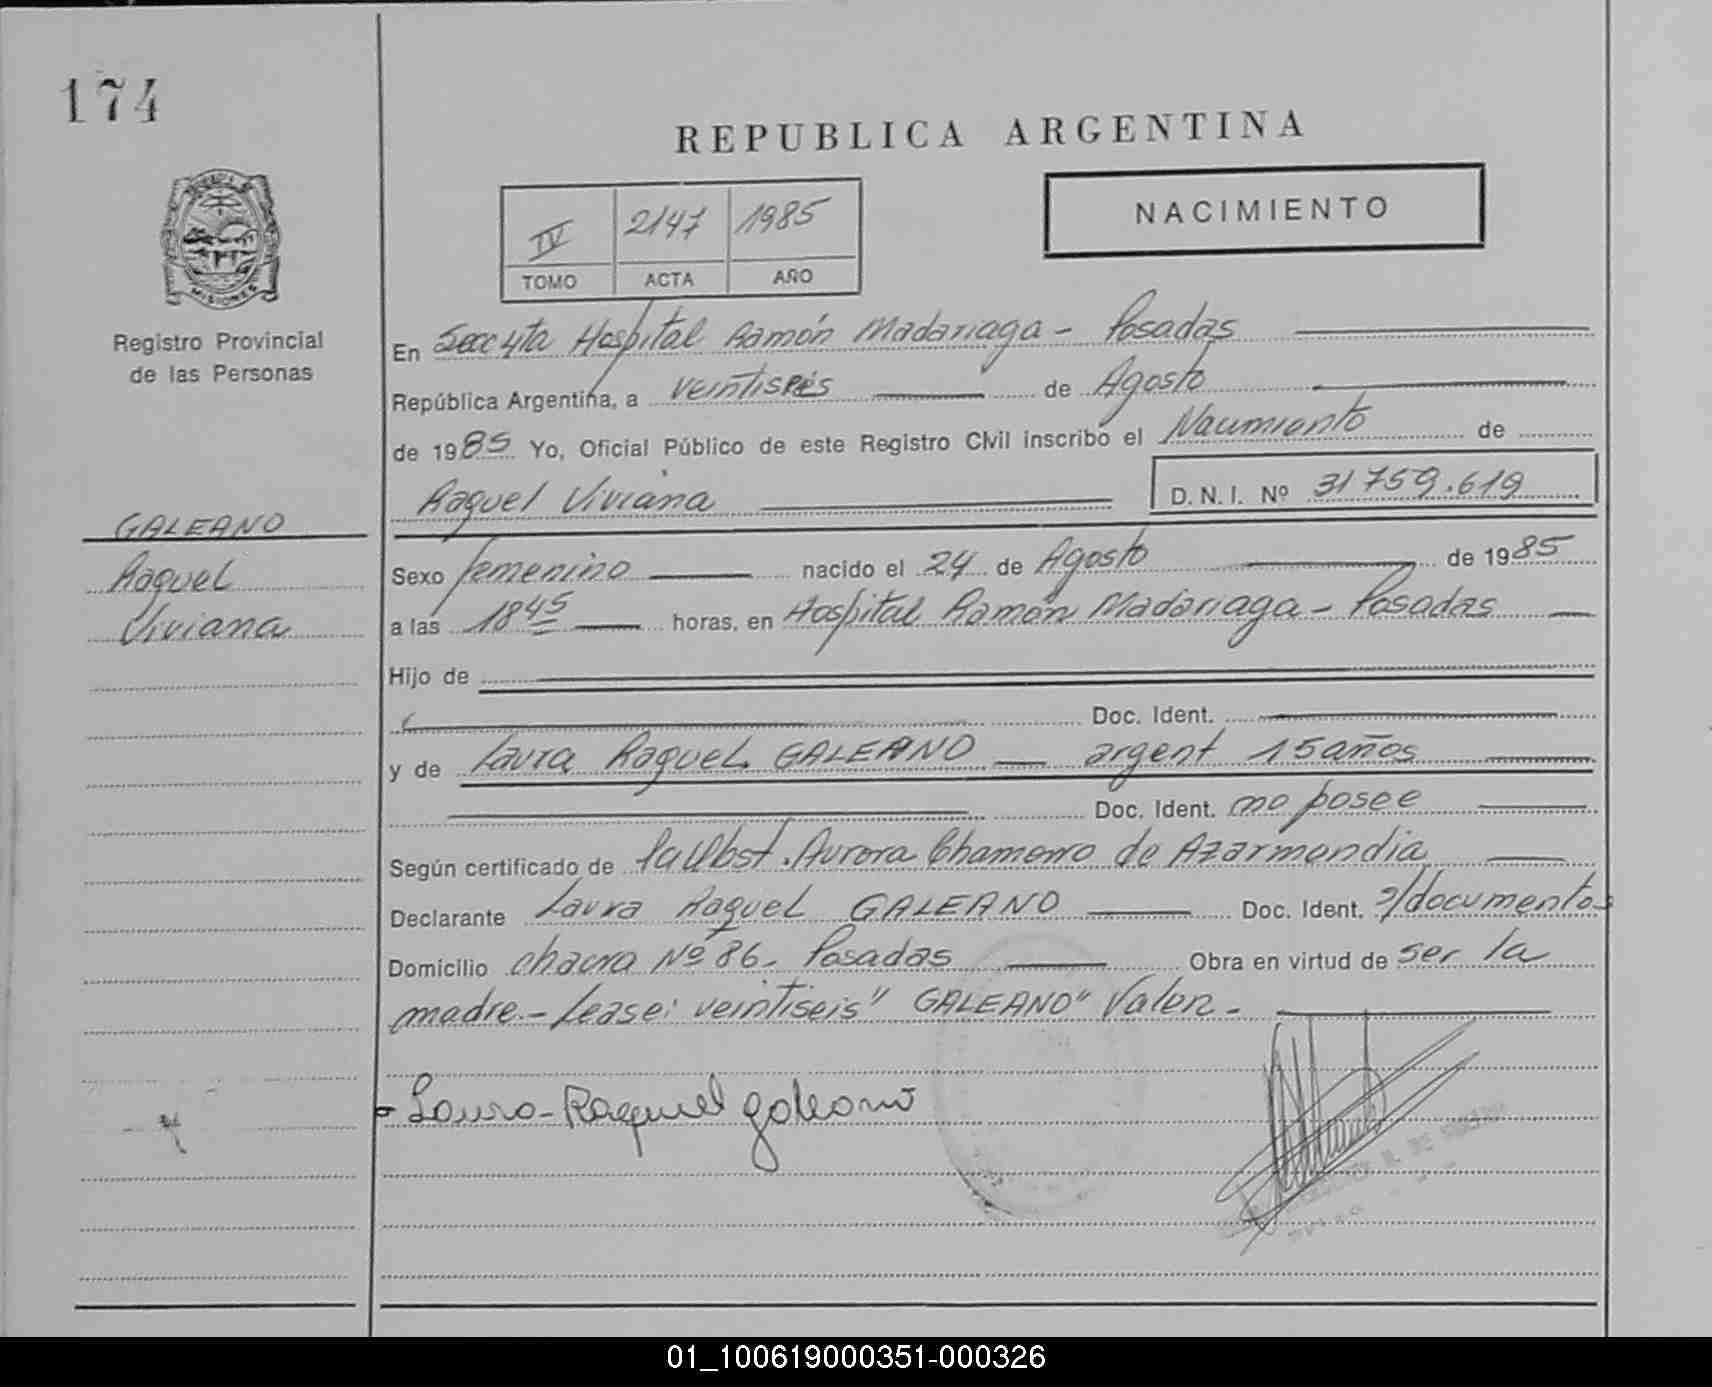 174
REPUBLICA ARGENTINA
NACIMIENTO
IV 2147 1985
TOMO ACTA AÑO
MISIONES
Registro Provincial
de las Personas
En Secc 4ta Hospital Ramón Madariaga - Posadas
República Argentina, a veintiseis de Agosto
de 1985 Yo, Oficial Público de este Registro Civil inscribo el Nacimiento de
Raquel Viviana D.N.I. Nº 31759.619
GALEANO
Raquel
Viviana
Sexo femenino nacido el 24 de Agosto de 1985
a las 18 45 horas, en Hospital Ramón Madariaga - Posadas
Hijo de
Doc. Ident.
y de Laura Raquel GALEANO argent 15 años
Doc. Ident. no posee
Según certificado de Aurora Chamorro de Azarmendia
Declarante Laura Raquel GALEANO Doc. Ident. s/documentos
Domicilio chacra Nº 86 - Posadas Obra en virtud de ser la
madre.- Lease: veintiseis" GALEANO" Valen -
Laura-Raquel galeano
01_100619000351-000326